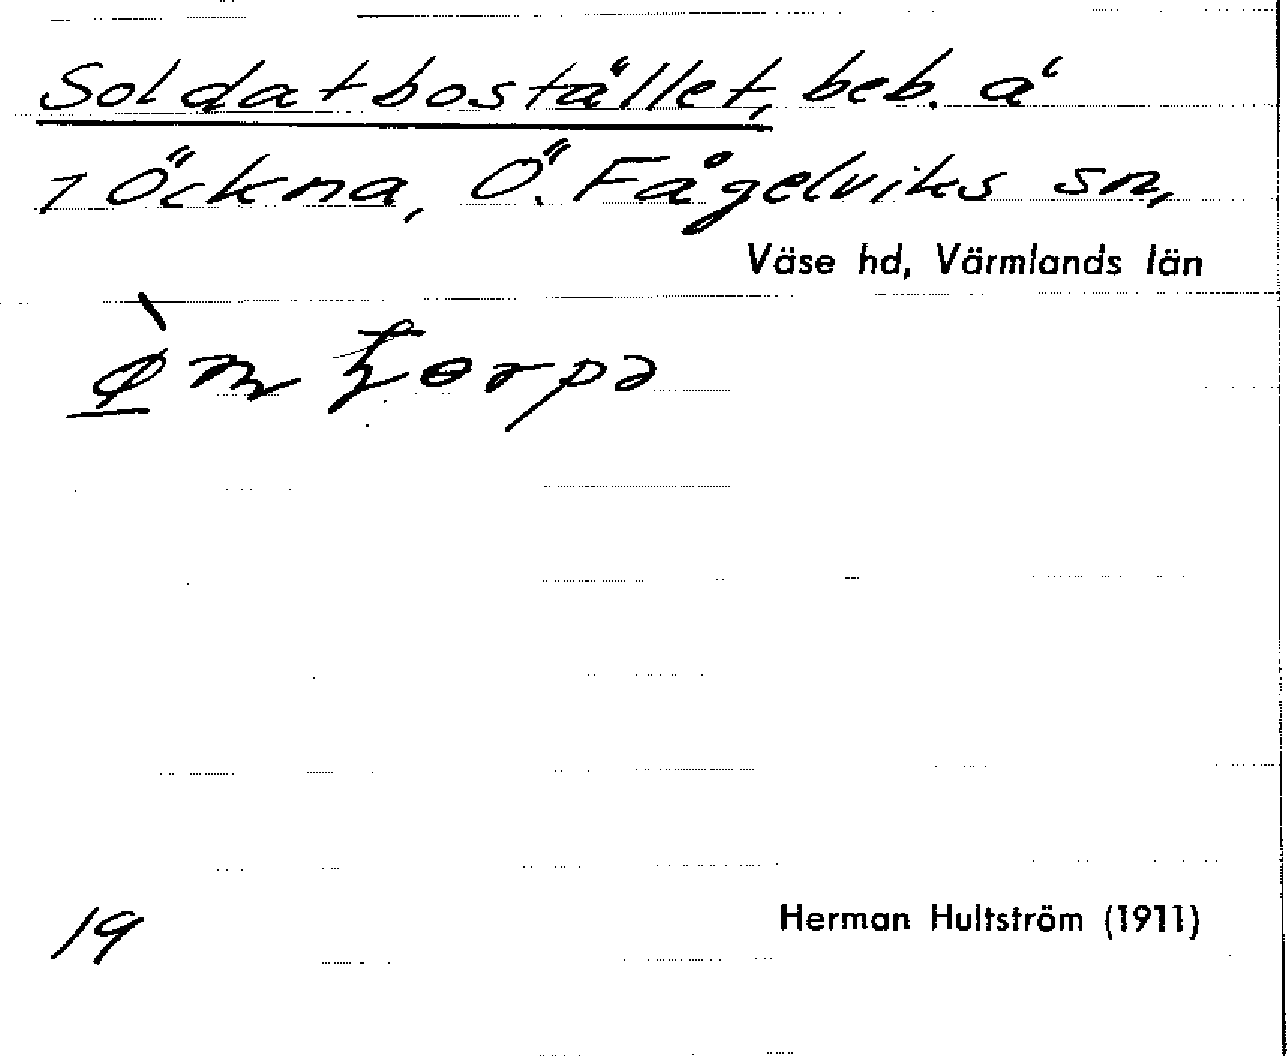 Soldatbostället, beb. å
1 Öckna, Ö. Fågelviks sn,
Väse hd, Värmlands län
19
Herman Hultström (1911)